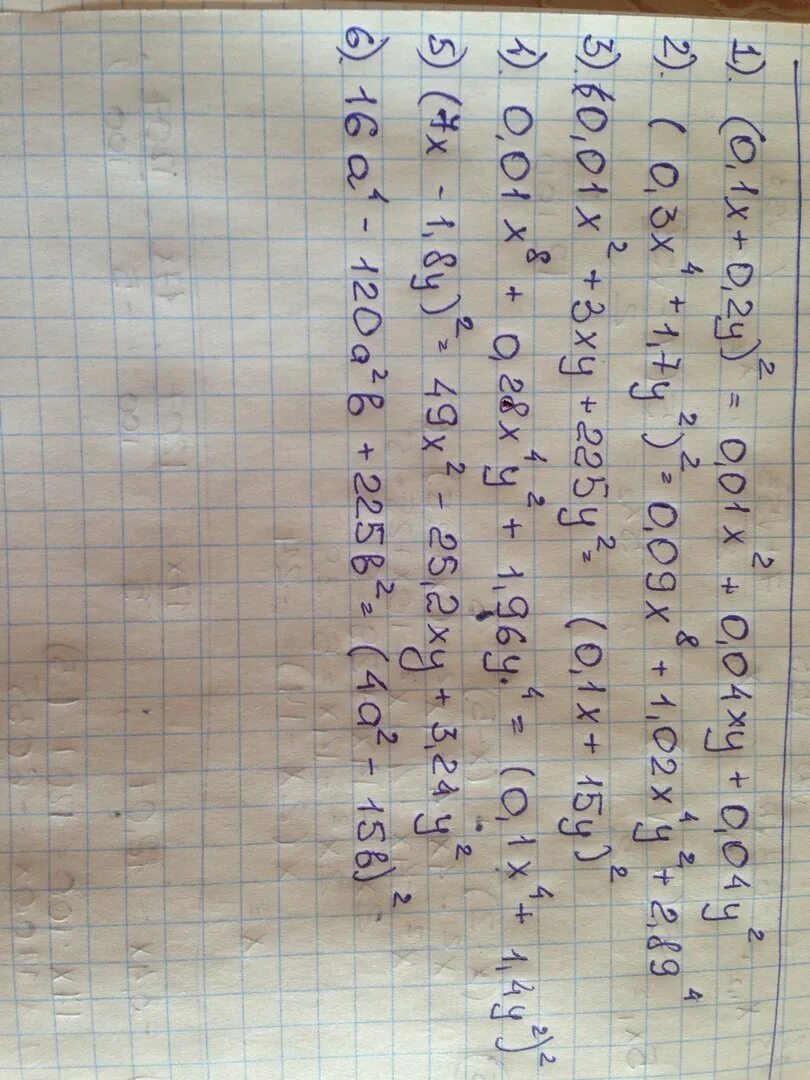 1). (0,1x + 0,2y)² = 0,01x² + 0,04xy + 0,04y²
2). (0,3x⁴ + 1,7y²)² = 0,09x⁸ + 1,02x⁴y² + 2,89⁴
3). 0,01x² + 3xy + 225y² = (0,1x + 15y)²
4). 0,01x⁸ + 0,28x⁴y² + 1,96y⁴ = (0,1x⁴ + 1,4y²)²
5) (7x - 1,8y)² = 49x² - 25,2xy + 3,24y²
6). 16a⁴ - 120a²b + 225b² = (4a² - 15b)²